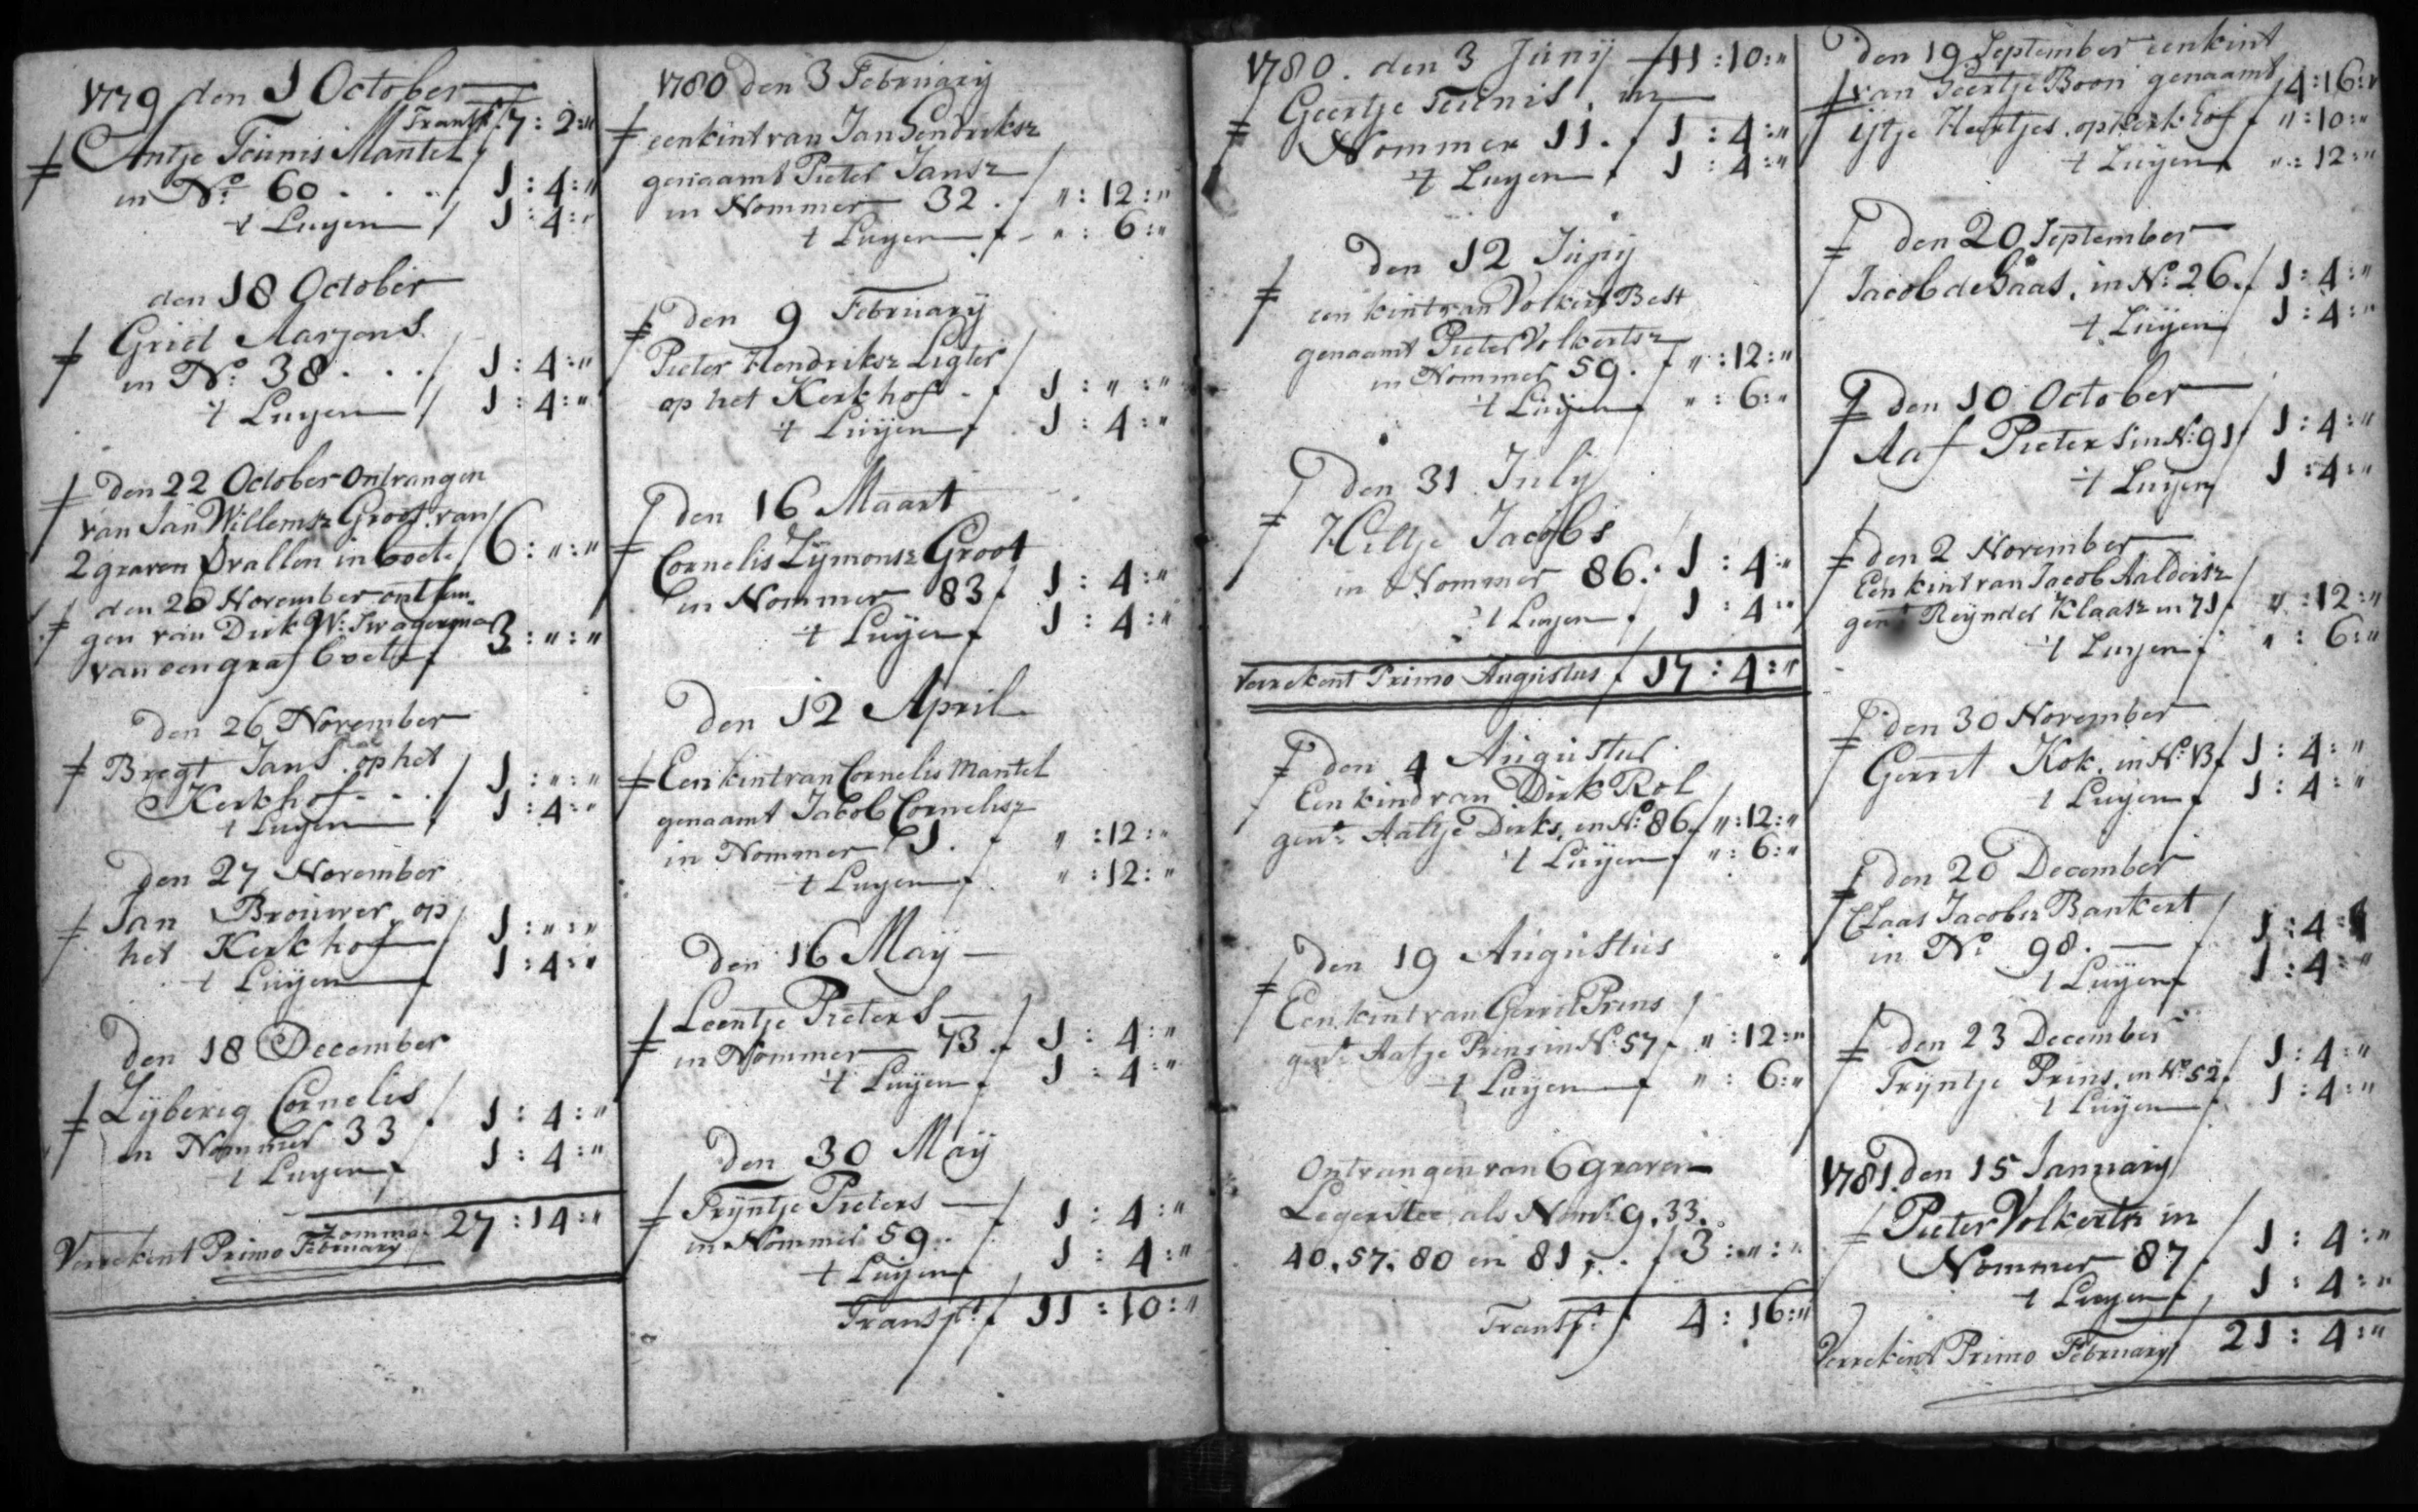 1779 den 1 October
Transpt. 7 : 2 : "
Antje Teunis Mantel
in No: 60 . . . . ƒ 1 : 4 : "
't Luyen ƒ 1 : 4 : "
den 18 October
Griet Marjens
in No: 38 . . . ƒ 1 : 4 : "
't Luyen ƒ 1 : 4 : "
den 22 October ontvangen
van Jan Willemsz Groot van
2 graven vallen in boete ƒ 6 : " : "
den 20 November ontfan-
gen van Dirk W: Swagerma
van een graf boete ƒ 3 : " : "
den 26 November
Bregt Jans op het
Kerkhof . . . ƒ 1 : " : "
't Luyen ƒ 1 : 4 : "
den 27 November
Jan Brouwer op
het Kerkhof ƒ 1 : " : "
't Luijen ƒ 1 : 4 : "
den 18 December
Zijberig Cornelis
in Nommer 33 ƒ 1 : 4 : "
't Luyen ƒ 1 : 4 : "
Zomma 27 : 14 : "
Verrekent Primo February
1780 den 3 February
een kint van Jan Hendriksz
genaamt Pieter Jansz
in Nommer 32 . ƒ " : 12 : "
't Luyen ƒ " : 6 : "
den 9 February
Pieter Hendriksz Ligter
op het Kerkhof . ƒ 1 : " : "
't Luijen ƒ 1 : 4 : "
den 16 Maart
Cornelis Zijmonsz Groot
in Nommer 83 ƒ 1 : 4 : "
't Luijen ƒ 1 : 4 : "
den 12 April
Een kint van Cornelis Mantel
genaamt Jacob Cornelisz
in Nommer 61 . ƒ " : 12 : "
't Luyen ƒ " : 12 : "
den 16 Maij
Leentje Pieters
in Nommer 73 . ƒ 1 : 4 : "
't Luijen ƒ 1 : 4 : "
den 30 Maij
Trijntje Pieters
in Nommer 59 . ƒ 1 : 4 : "
't Luijen ƒ 1 : 4 : "
Transpt. ƒ 11 : 10 : "
1780. den 3 Junij ƒ 11 : 10 : "
Geertje Teunis, in
Nommer 11 . ƒ 1 : 4 : "
't Luyen ƒ 1 : 4 : "
den 12 Junij
een kint van Volkert Best
genaamt Pieter Volkertsz
in Nommer 59 . ƒ " : 12 : "
't Luijen ƒ " : 6 : "
den 31 July
Hiltje Jacobs
in Nommer 86 . 1 : 4 : "
't Luyen ƒ 1 : 4 : "
Verrekent Primo Augustus ƒ 17 : 4 : "
den 4 Augustus
Een kind van Dirk Rol
gent: Aaltje Dirks, in No: 86 ƒ " : 12 : "
't Luijen ƒ " : 6 : "
den 19 Augustus
Een kint van Gerrit Prins
gent: Aatje Prins in No: 57 ƒ " : 12 : "
't Luijen ƒ " : 6 : "
Ontvangen van 6 graven
Legerstee, als Nomr: 9, 33,
40, 57, 80 en 81 . . ƒ 3 : " : "
Transpt. ƒ 4 : 16 : "
den 19 September een kint
van Geertje Boon genaamt ƒ 4 : 16 : "
ijtje Hertjes, op Kerkhof ƒ " : 10 : "
't Luyen ƒ " : 12 : "
den 20 September
Jacob de Haas, in No: 26 ƒ 1 : 4 : "
't Luijen ƒ 1 : 4 : "
den 10 October
Aaf Pieters in No: 91 ƒ 1 : 4 : "
't Luyen ƒ 1 : 4 : "
den 2 November
Een kint van Jacob Aaldersz
gent: Reijnder Klaasz in 71 ƒ " : 12 : "
't Luyen ƒ " : 6 : "
den 30 November
Gerrit Kok, in No: 13 ƒ 1 : 4 : "
't Luijen ƒ 1 : 4 : "
den 20 December
Claas Jacobsz Bankert
in No: 98 . ƒ 1 : 4 : "
't Luijen ƒ 1 : 4 : "
den 23 December
Trijntje Prins, in No: 52 ƒ 1 : 4 : "
't Luijen ƒ 1 : 4 : "
1781 den 15 January
Pieter Volkertsz in
Nommer 87 ƒ 1 : 4 : "
't Luyen ƒ 1 : 4 : "
Verrekent Primo February ƒ 21 : 4 : "